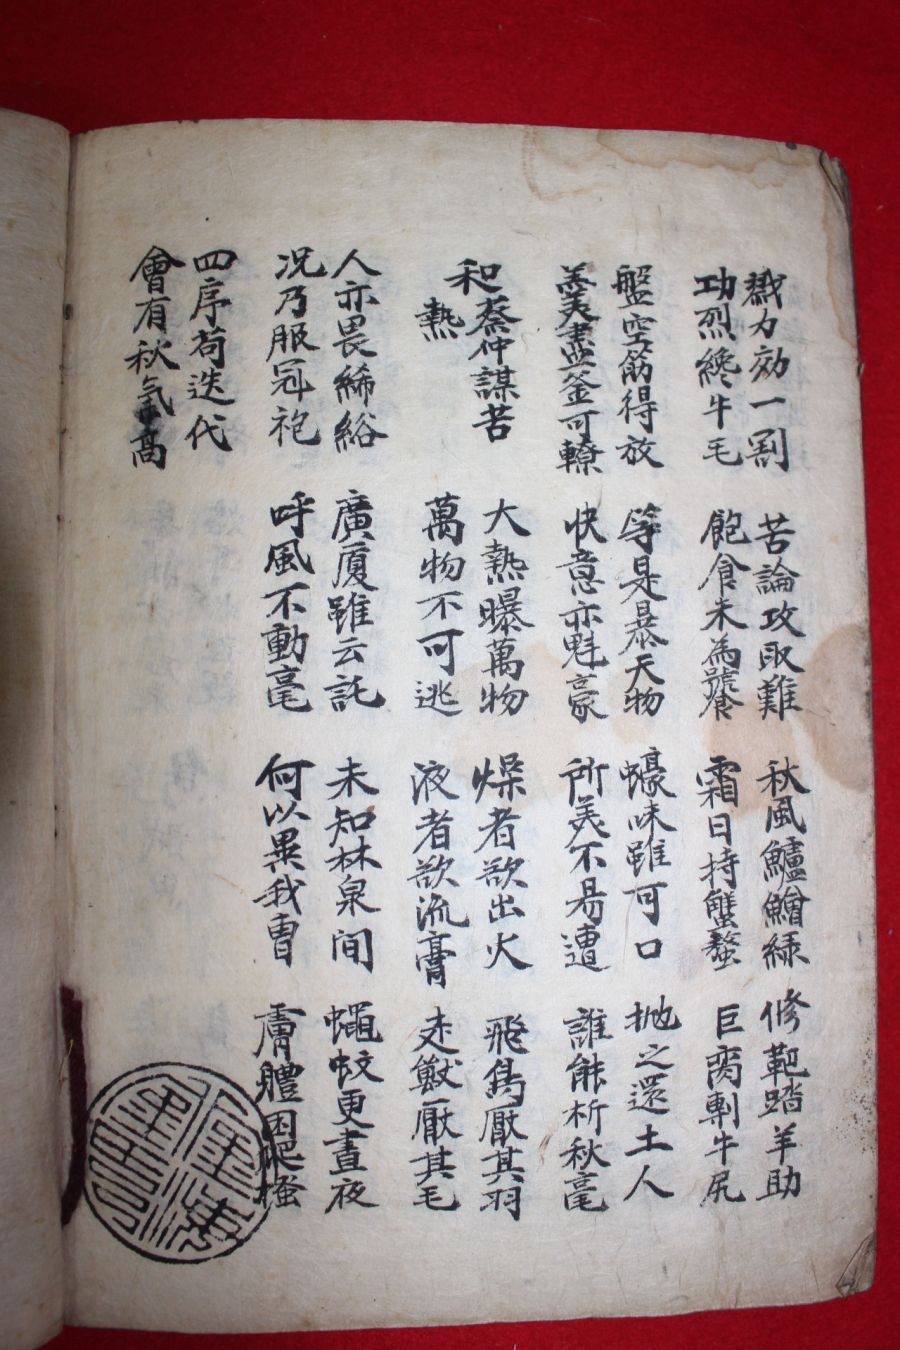 戮力効一割 苦論攻取難 秋風鱸鱠綠 修靶踏羊助
功烈纔牛毛 飽食未為饕 霜日持蟹螯 巨臠剸牛尻
盤空筯得放 等是暴天物 蠔味雖可口 抛之還土人
羹盡釜可轑 快意亦魁豪 所羙不易遭 誰能析秋毫
和蔡仲謀苦熱
大熱曝萬物 燥者欲出火 飛鳥厭其羽
萬物不可逃 液者欲流膏 走獸厭其毛
人亦畏絺綌 廣廈雖云託 未知林泉間 蠅蚊更晝夜
況乃服冠袍 呼風不動毫 何以異我曹 膚體困爬搔
四序苟迭代
會有秋氣高